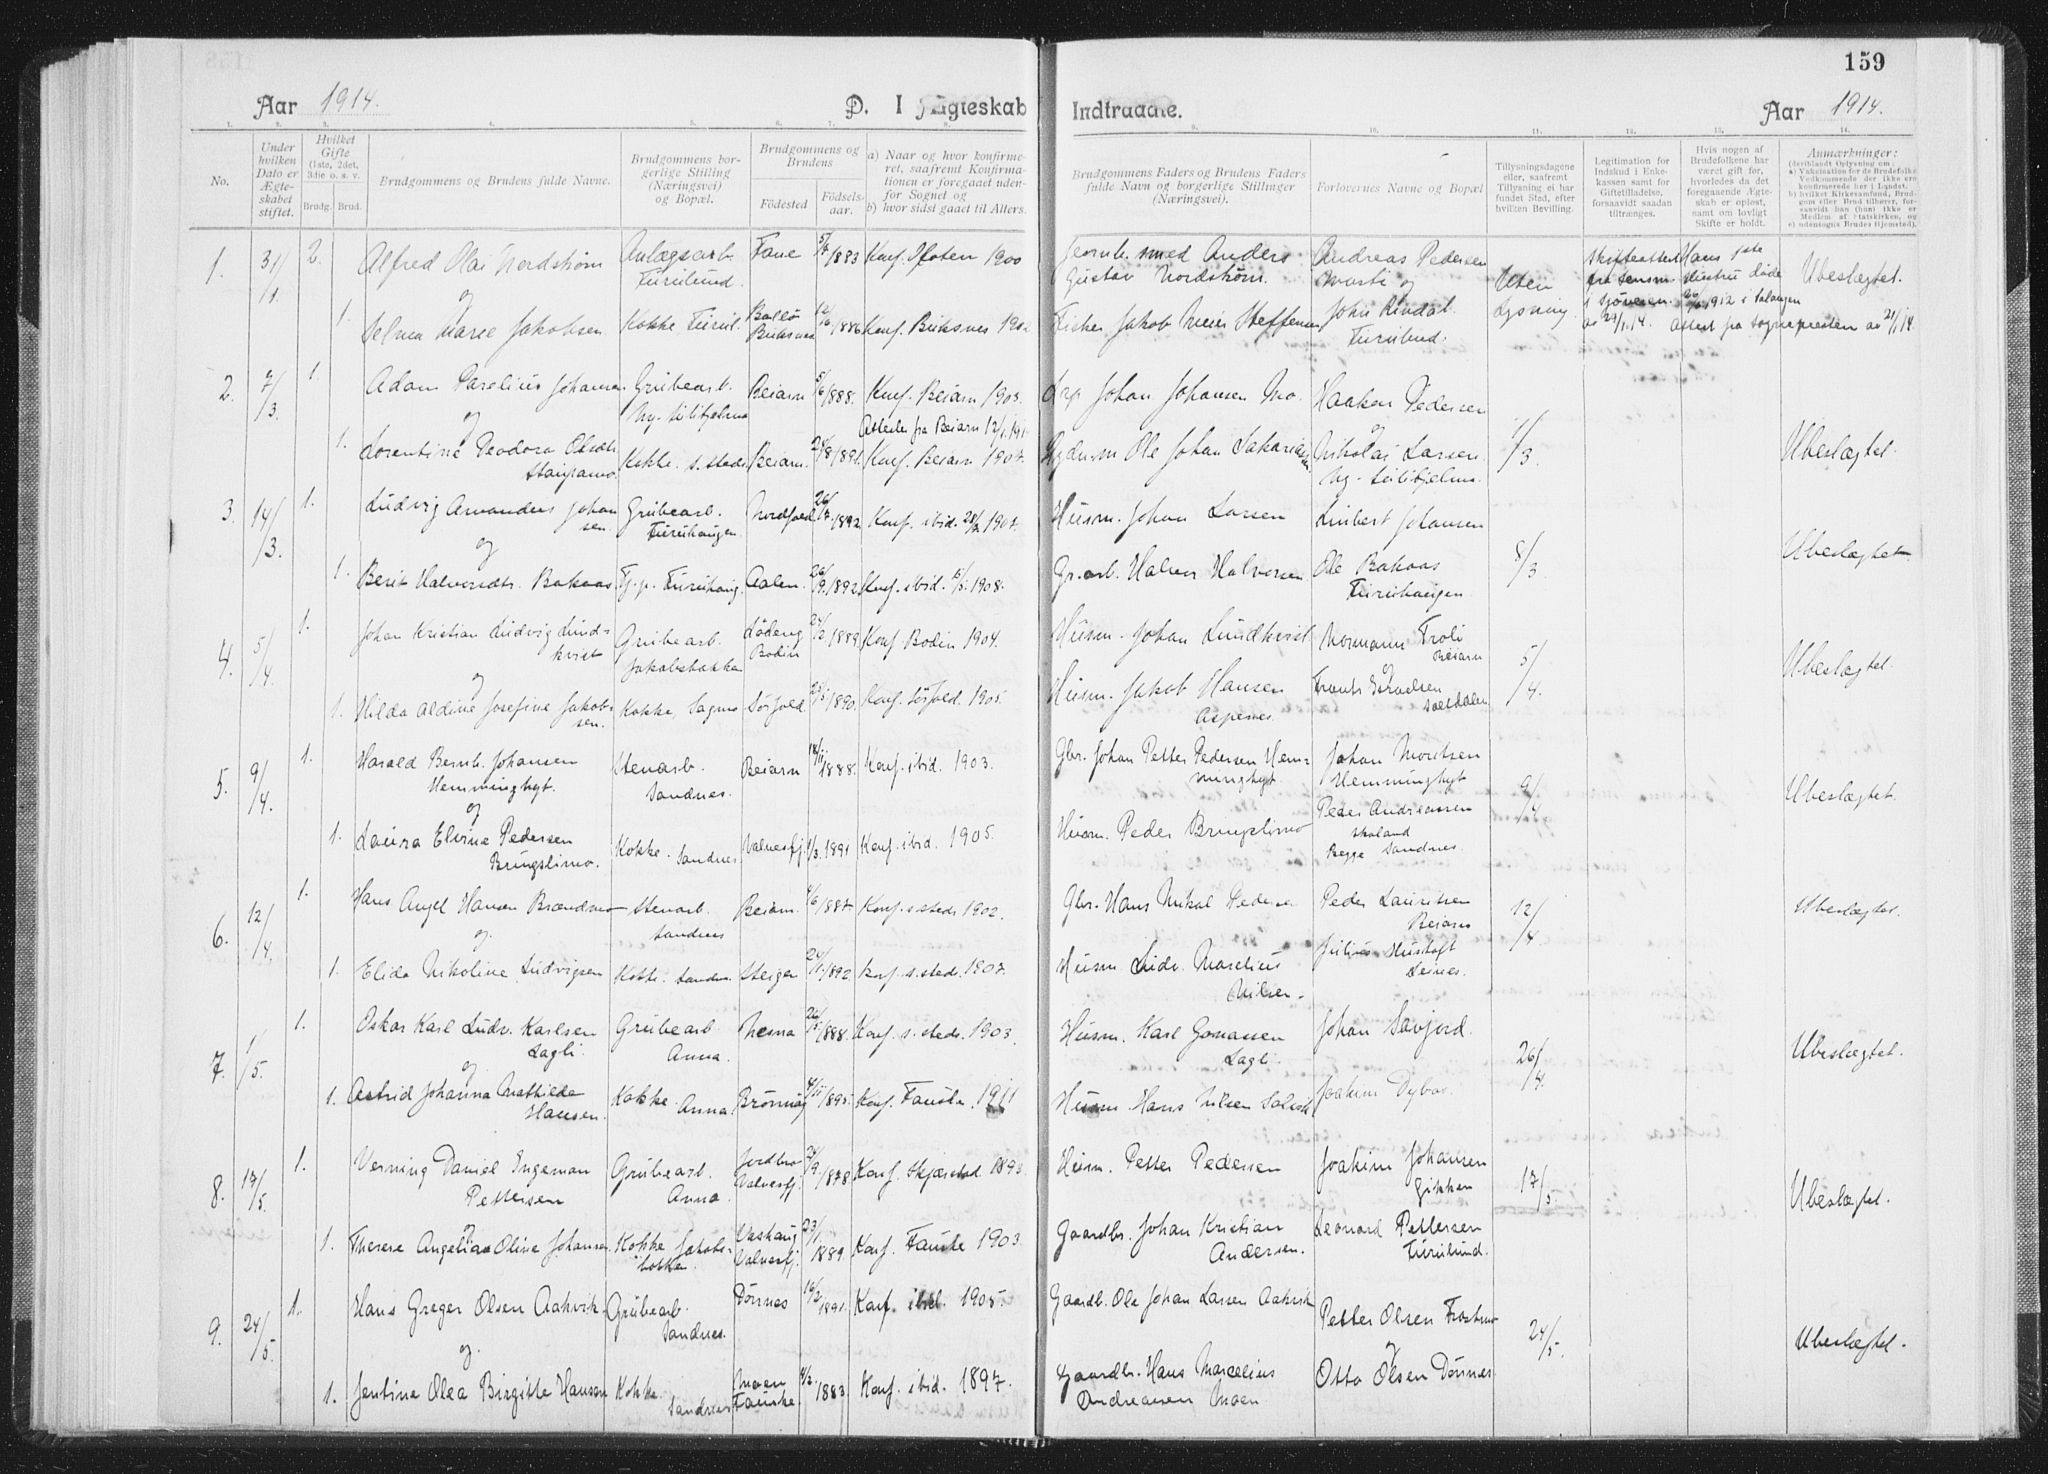 159
Aar 1914. D. I Ægteskab Indtraadte. Aar 1914.
1. 2. 3. 4. 5. 6. 7. 8. 9. 10. 11. 12. 13. 14.
No.
Under hvilken Dato er Ægteskabet stiftet.
Hvilket Gifte (1ste, 2det, 3die o. s. v.
Brudg. Brud.
Brudgommens og Brudens fulde Navne.
Brudgommens borgerlige Stilling (Næringsvei) og Bopæl.
Brudgommens og Brudens
Fødested Fødselsaar.
a) Naar og hvor konfirmeret, saafremt Konfirmationen er foregaaet udenfor Sognet og
b) hvor sidst gaaet til Alters.
Brudgommens Faders og Brudens Faders fulde Navn og borgerlige Stillinger (Næringsvei).
Forlovernes Navne og Bopæl
Tillysningsdagene eller, saafremt Tillysning ei har fundet Sted, efter hvilken Bevilling.
Legitimation for Indskud i Enkekassen samt for Giftetilladelse, forsaavidt saadan tiltrænges.
Hvis nogen af Brudefolkene har været gift før, hvorledes da det foregaaende Ægteskab er opløst, samt om lovligt Skifte er holdt.
Anmærkninger:
(deriblandt Oplysning om:
a) Vaksination for de Brudefolks Vedkommende der ikke ere konfirmerede her i Landet.
b) hvilket Kirkesamfund, Brudgom eller Brud tilhører, forsaavidt han (hun) ikke er Medlem af Statskirken, og
c) udensogns Brudes Hjemsted).
1. 31/1. 2. Alfred Olai Nordstrøm Anlægsarb. Furulund. 1883 Konf. Ofoten 1900 Jernb. smed Anders Gustav Nordstrøm. Andreas Pedersen og Uten Lysning Ubeslægtet.
og
1. Selma Marie Jakobsen Kokke Furul. Buksnes 12/6 1886 Konf. Buksnes Fisker Jakob Meier Steffensen John Rindal Furulund.
2. 7/3. 1. Adam Parelius Johansen Grubearb. Ny-Sulitjelma Beiarn 5/6 1888. Konf. Beiarn 1903. Johan Johansen Mo. Haakon Pedersen 1/3 Ubeslægtet.
og
1. Lorentine Teodora Olsdtr. Staigramo. Kokke s. steds Beiarn. 1891. Konf. Beiarn 1907. Ole Johan Sakariassen Nikolai Larsen Ny-Sulitjelma.
3. 14/3. 1. Ludvig Amandus Johansen. Grubearb. Furuhaugen. Nordfold 26/7 1892 Konf. ibid. 1907. Husm. Johan Larsen Limbert Johansen 8/3 Ubeslægtet
og
1. Berit Halvorsdtr. Bakaas Tj.p. Furuhaug. Aalen. 26/9 1892 Konf. ibid. 1908. Gr. arb. Halvor Halvorsen Ole Bakaas Furuhaugen
4. 5/4. 1. Johan Kristian Ludvig Lundkvist Grubearb. Jakobsbakken Løding Bodin 24/2 1889 Konf. Bodin 1904. Husm. Johan Lundkvist Normann Troli Beiarn 5/4. Ubeslægtet.
og
1. Hilda Aldine Josefine Jakobsen. Kokke, Sagmo Sørfold 1890. Konf. Sørfold. 1905. Husm. Jakob Hansen Aspenes. Saltdalen
5. 9/4. 1. Harald Bernh. Johansen Hemminghyt. Stenarb. Sandnes. Beiarn 18/11 1888. Konf. ibid. 1903. Gbr. Johan Petter Pedersen Hemminghyt. Johan Moritsen Hemminghyt 9/4 Ubeslægtet.
og
1. Laura Elvine Pedersen Bringslimo. Kokke. Sandnes Valnesfj. 1/3. 1891 Konf. ibid. 1905. Husm. Peder Bringslimo Peder Andreassen Skoland Begge Sandnes.
6. 12/4. 1. Hans Angel Hansen Brændmo Stenarb. Sandnes Beiarn. 1887. Konf. s. steds 1902. Gbr. Hans Nikol Pedersen Peder Lauritsen Beiarn 12/4 Ubeslægtet.
og.
1. Elida Nikoline Ludvigsen Kokke. Sandn. Steigen 1892. Konf. s. steds. 1907. Husm. Ludv. Marelius Nilsen. Julius Hustoft Leines.
7. 1/5. 1. Oskar Karl Ludv. Karlsen Lagli. Grubearb Anna. Nesna 1888. Konf. s. steds. 1903. Husm. Karl Jonassen Lagli. Johan Savjord. 26/4. Ubeslægtet.
og
1. Astrid Johanna Mathilde Hansen. Kokke. Anna Brønnøy 1895. Konf. Fauske. 1911 Husm. Hans Nilsen Joakim Dybos.
8. 17/5. 1. Verning Daniel Ingeman Pettersen Grubearb. Anna. Jordbro Valnesfj. 1878 Konf. Skjærstad. 1893 Husm. Petter Pedersen Joakim Johansen Gikken 17/5. Ubeslægtet.
og
1. Therese Angelica Oline Johansen Kokke Jakobsbakken Valnesfj. 23/1 1889. Konf. Fauske 1903. Gaardbr. Johan Kristian Andersen. Leonard Pettersen Furulund.
9. 24/5. 1. Hans Greger Olsen Aakvik Grubearb. Sandnes. Dønnes 1891. Konf. ibid. 1905. Gaardb. Ole Johan Larsen Aakvik Petter Olsen 24/5. Ubeslægtet.
og.
1. Jentine Olea Birgitte Hansen Kokke. Sandnes Moen Fauske. 1883. Konf. ibid. 1897. Gaardbr. Hans Marcelius Andreassen Moen Otto Olsen Dønnes